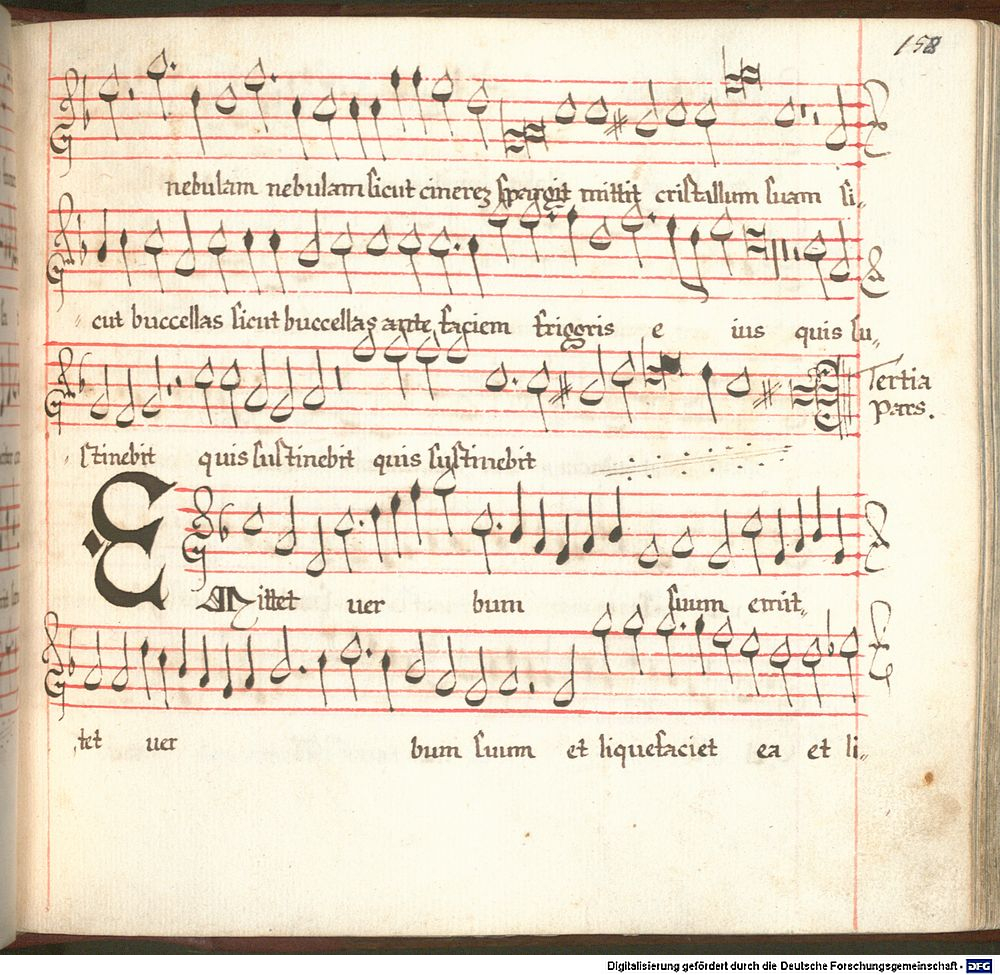 158
nebulam nebulam sicut cinerez spargit mittit cristallum suam si„
cut buccellas sicut buccellas ante faciem frigoris e ius quis su„
Tertia
Pars.
stinebit quis sustinebit quis sustinebit
EMittet uer bum suum emit„
tet uer bum suum et liquefaciet ea et li„
Digitalisierung gefördert durch die Deutsche Forschungsgemeinschaft - DFG